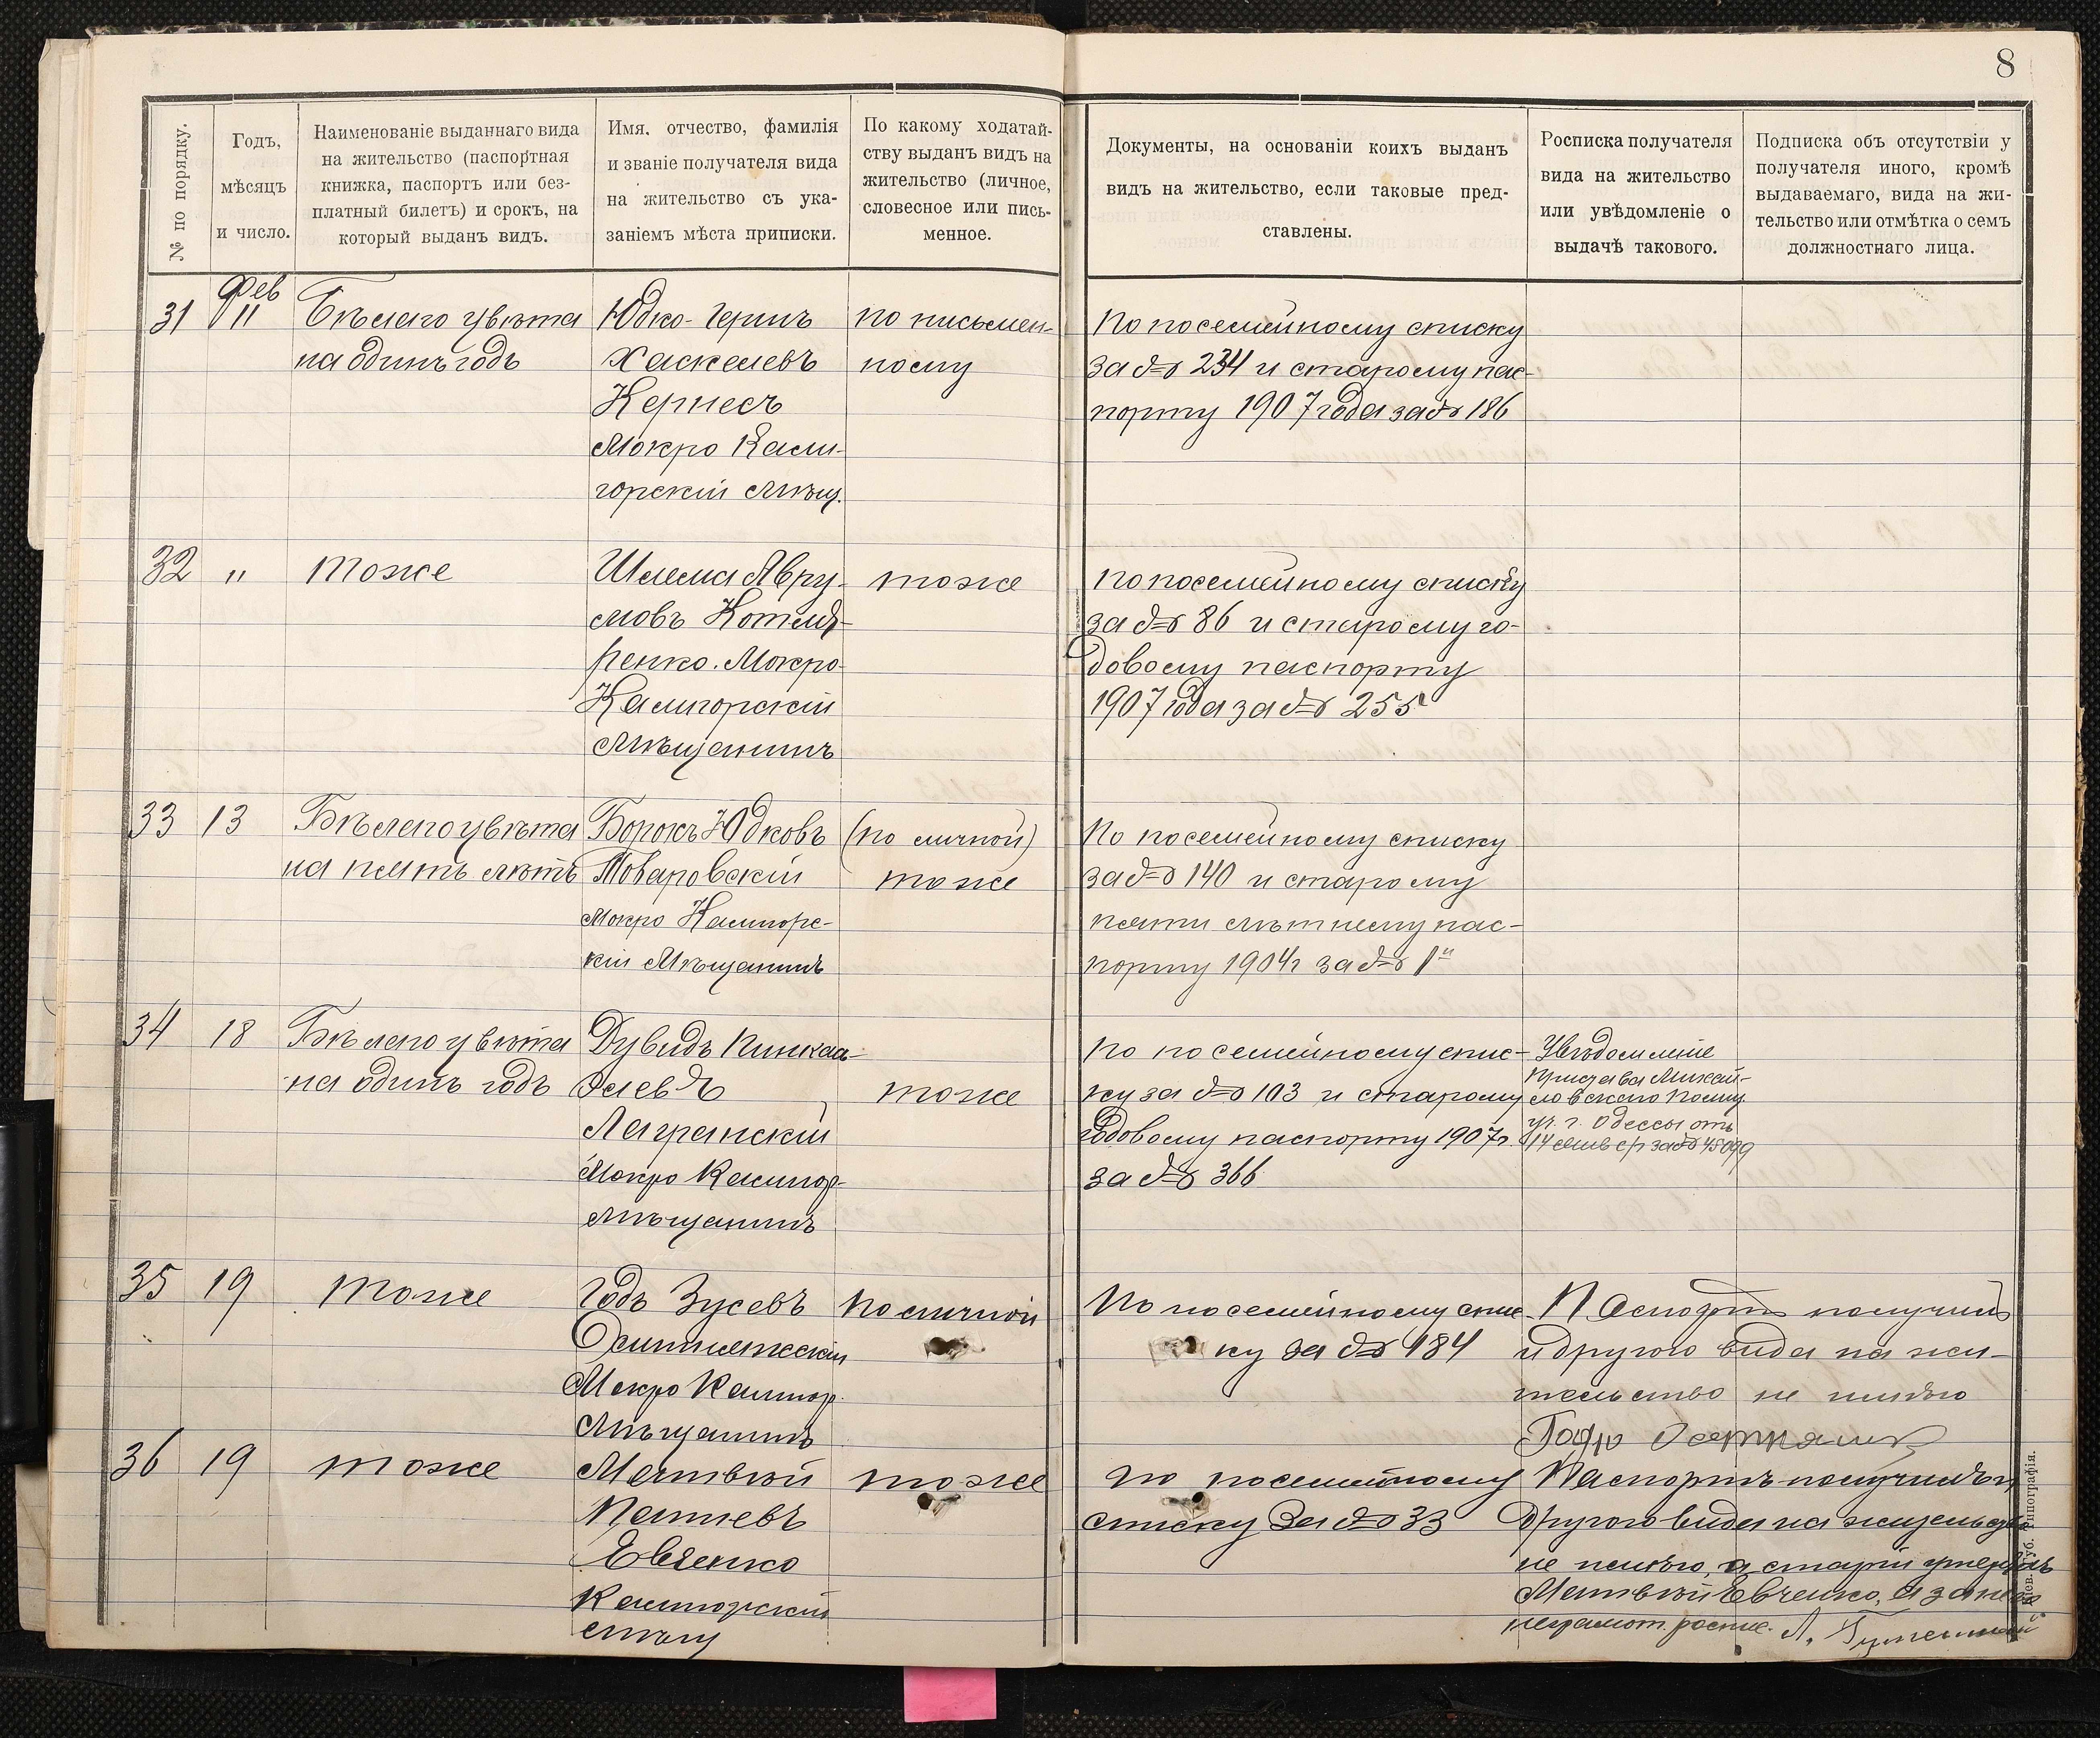 8
№ по порядку.
Годъ,
мѣсяцъ
и число.
Наименованіе выданнаго вида
на жительство (паспортная
книжка, паспортъ или без-
платный билетъ) и срокъ, на
который выданъ видъ.
Имя, отчество, фамилія
и званіе получателя вида
на жительство съ ука-
заніемъ мѣста приписки.
По какому ходатай-
ству выданъ видъ на
жительство (личное,
словесное или пись-
менное.
Документы, на основаніи коихъ выданъ
видъ на жительство, если таковые пред-
ставлены.
Росписка получателя
вида на жительство
или увѣдомленіе о
выдачѣ такового.
Подписка объ отсутствіи у
получателя иного, кромѣ
выдаваемаго, вида на жи-
тельство или отмѣтка о семъ
должностнаго лица.
31
Фев
11
Бѣлаго цвѣта
на одинъ годъ
Юдко-Гершъ
Хаскелевъ
Кернесъ
Мокро Кали-
горскій Мѣщ.
по письмен-
ному
По посемейному списку
за № 234 и старому пас-
порту 1907 года за № 186
32
"
тоже
Шлема Авру-
мовъ Котля-
ренко. Мокро-
Калигорскій
Мѣщанинъ
тоже
По посемейному списку
за № 86 и старому го-
довому паспорту
1907 года за № 255
33
13
Бѣлаго цвѣта
на пять лѣтъ
Борохъ Юдковъ
Товаровскій
Мокро Калигорс-
кій Мѣщанинъ
(по личной)
тоже
По посемейному списку
за № 140 и старому
пяти лѣтнему пас-
порту 1904 г за №
34
18
Бѣлаго цвѣта
на одинъ годъ
Дувидъ
Мокро Калигор-
мѣщанинъ
тоже
По посемейному спис-
ку за № 103 и старому
годовому паспорту 1907 г.
за № 366
Увѣдомленіе
Пристава Михай-
ловскаго полиц.
уч. г. Одессы отъ
35
19
тоже
Годъ Зусевъ
Мокро Калигор.
Мѣщанинъ
По личной
По посемейному спис-
ку за № 184
Паспортъ получилъ
и другого вида на жи-
тельство не имѣю
36
19
тоже
Матвѣй
Евченко
Калигорскій
мѣщ
тоже
По посемейному
списку за № 33
Паспортъ получилъ и
другого вида на
не имѣю, а старый утерялъ
Матвѣй Евченко, а за него
неграмот. роспис.
Губ. Типографія.